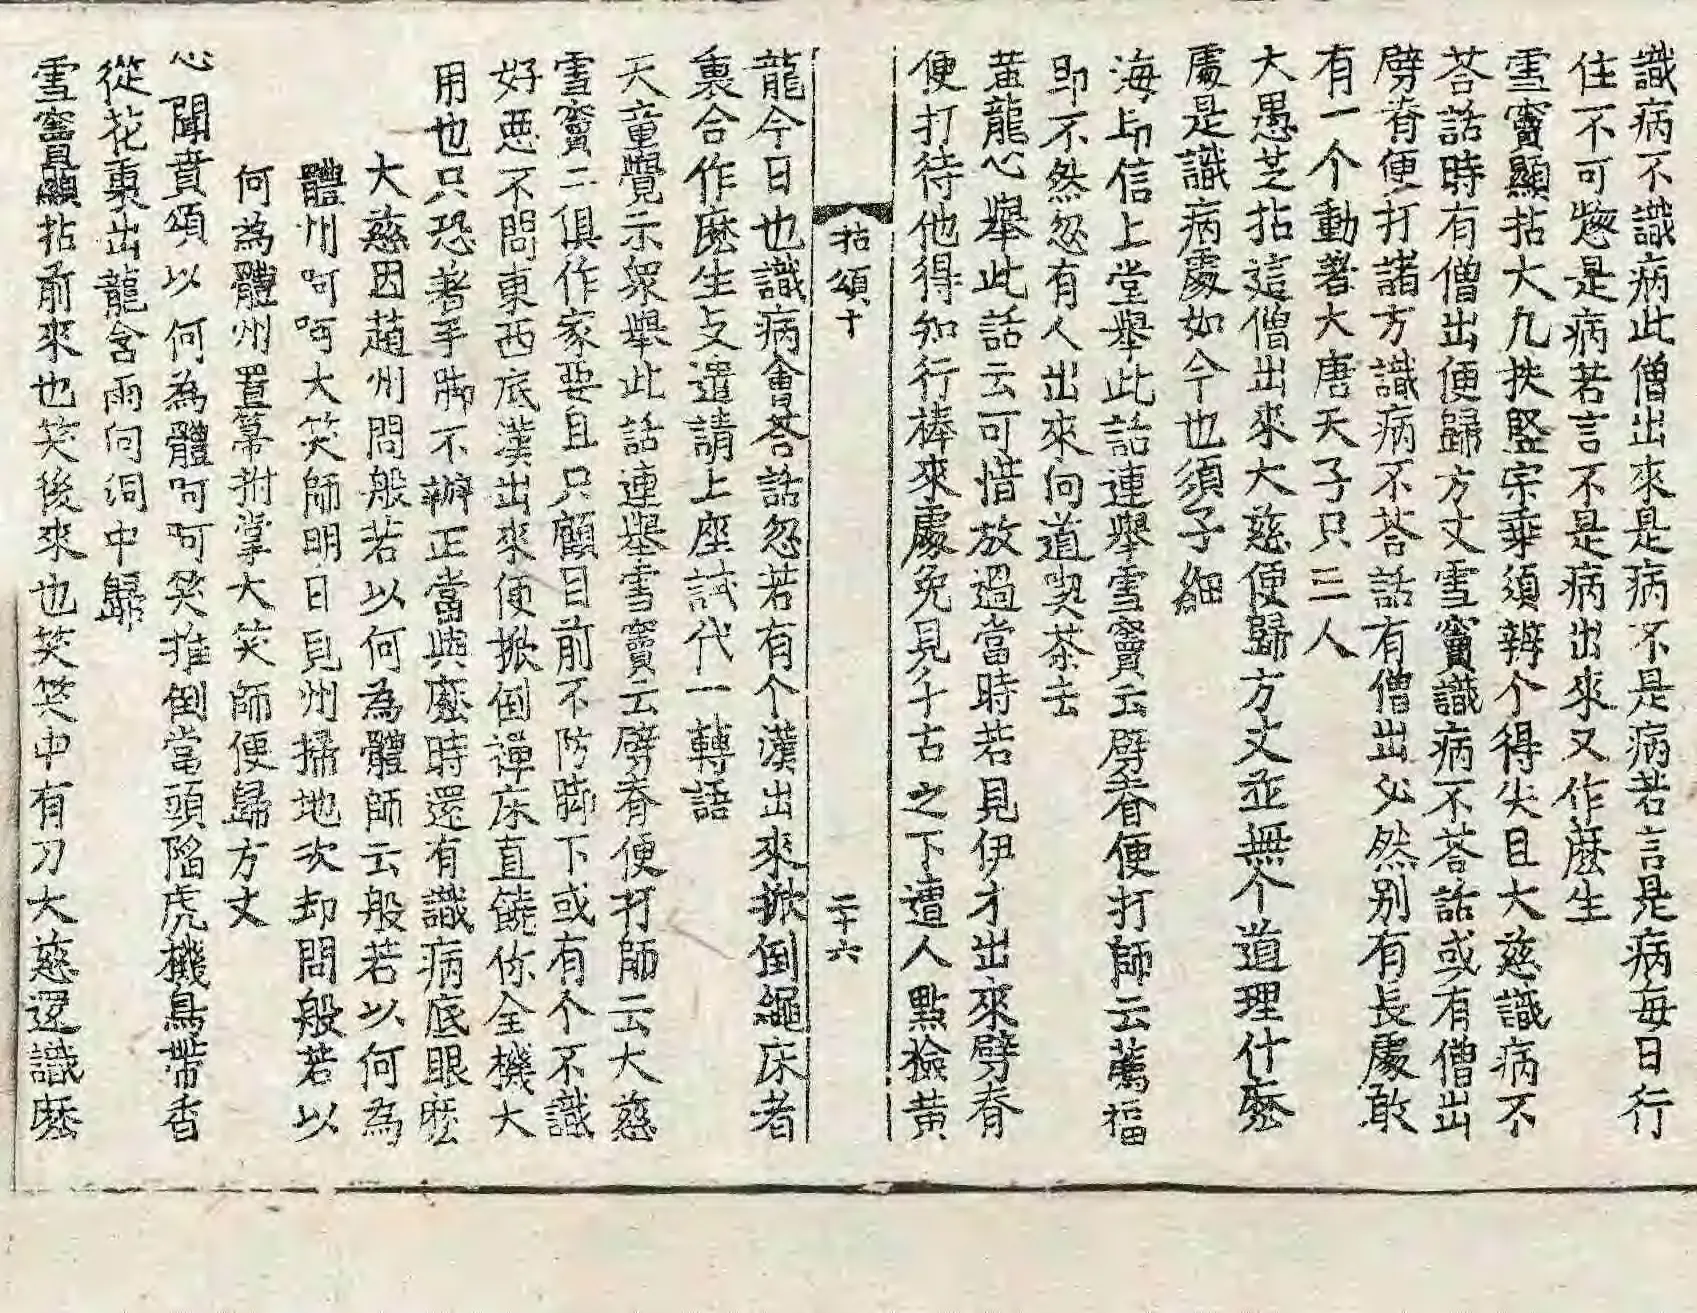 識病不識病此僧出來是病不是病若言是病每日行
住不可惣是病若言不是病出來又作麽生
雪竇顯拈大凡扶竪宗乘須辨个得失且大慈識病不
荅話時有僧出便歸方丈雪竇識病不荅話或有僧出
劈脊便打諸方識病不荅話有僧出必然别有長處敢
有一个動著大唐天子只三人
大愚芝拈這僧出來大慈便歸方丈並無个道理什麽
處是識病處如今也須子細
海印信上堂舉此話連舉雪竇云劈脊便打師云薦福
即不然忽有人出來向道喫茶去
黃龍心舉此話云可惜放過當時若見伊才出來劈脊
便打待他得知行棒來處免見千古之下遭人點撿黃
拈頌十 二十六
龍今日也識病會荅話忽若有个漢出來掀倒繩床者
裏合作麽生支遣請上座試代一轉語
天童覺示衆舉此話連舉雪竇云劈脊便打師云大慈
雪竇二俱作家要且只顧目前不防脚下或有个不識
好惡不問東西底漢出來便掀倒禪床直饒你全機大
用也只恐著手脚不辦正當與麽時還有識病底眼麽
大慈因趙州問般若以何為體師云般若以何為
體州呵呵大笑師明日見州掃地次却問般若以
何為體州置箒拊掌大笑師便歸方丈
心聞賁頌以何為體呵呵笑推倒當頭陷虎機鳥帶香
從花裏出龍含雨向洞中歸
雪竇顯拈前來也笑後來也笑笑中有刀大慈還識麽